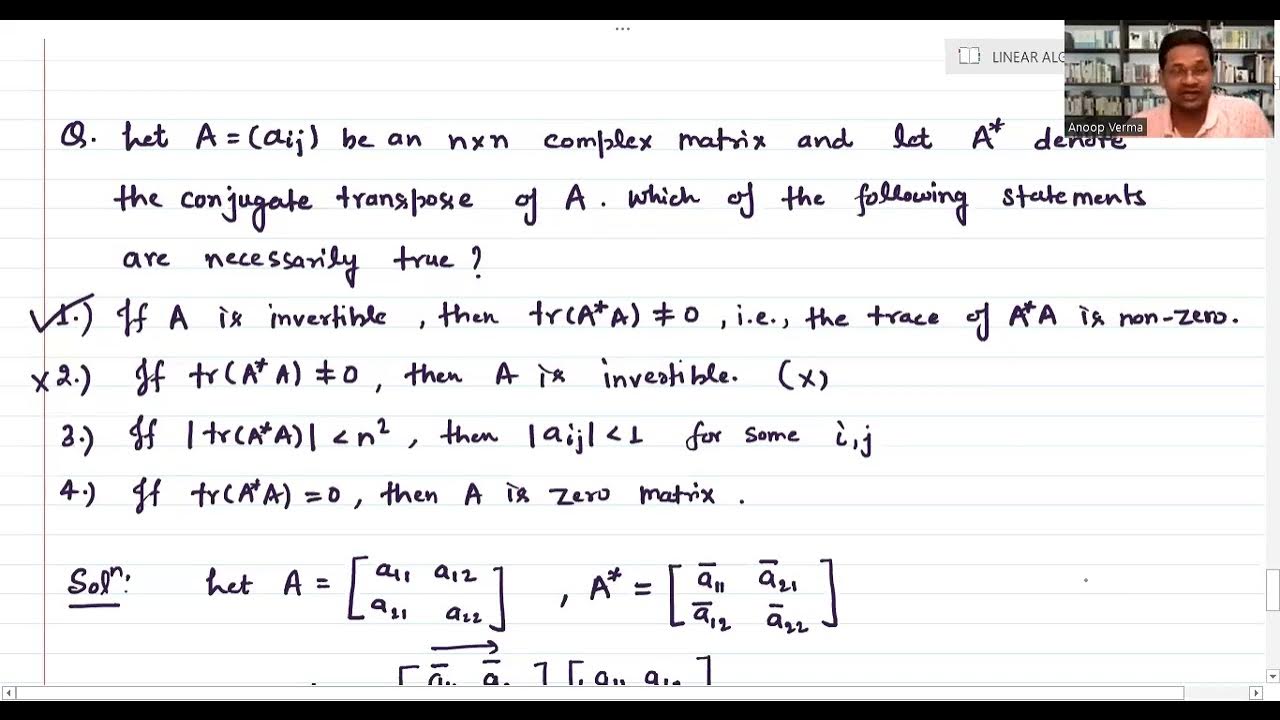 ...
LINEAR ALG
Anoop Verma
Q. Let A = (aij) be an n×n complex matrix and let A* denote
the conjugate transpose of A. which of the following statements
are necessarily true?
✓1.) If A is invertible, then tr(A*A) ≠ 0, i.e., the trace of A*A is non-zero.
×2.) If tr(A*A) ≠ 0, then A is invertible. (×)
3.) If |tr(A*A)| < n², then |aij| < 1 for some i,j
4.) If tr(A*A) = 0, then A is zero matrix.
Solⁿ: Let A = [a₁₁ a₁₂
a₂₁ a₂₂], A* = [a̅₁₁ a̅₂₁
a̅₁₂ a̅₂₂]